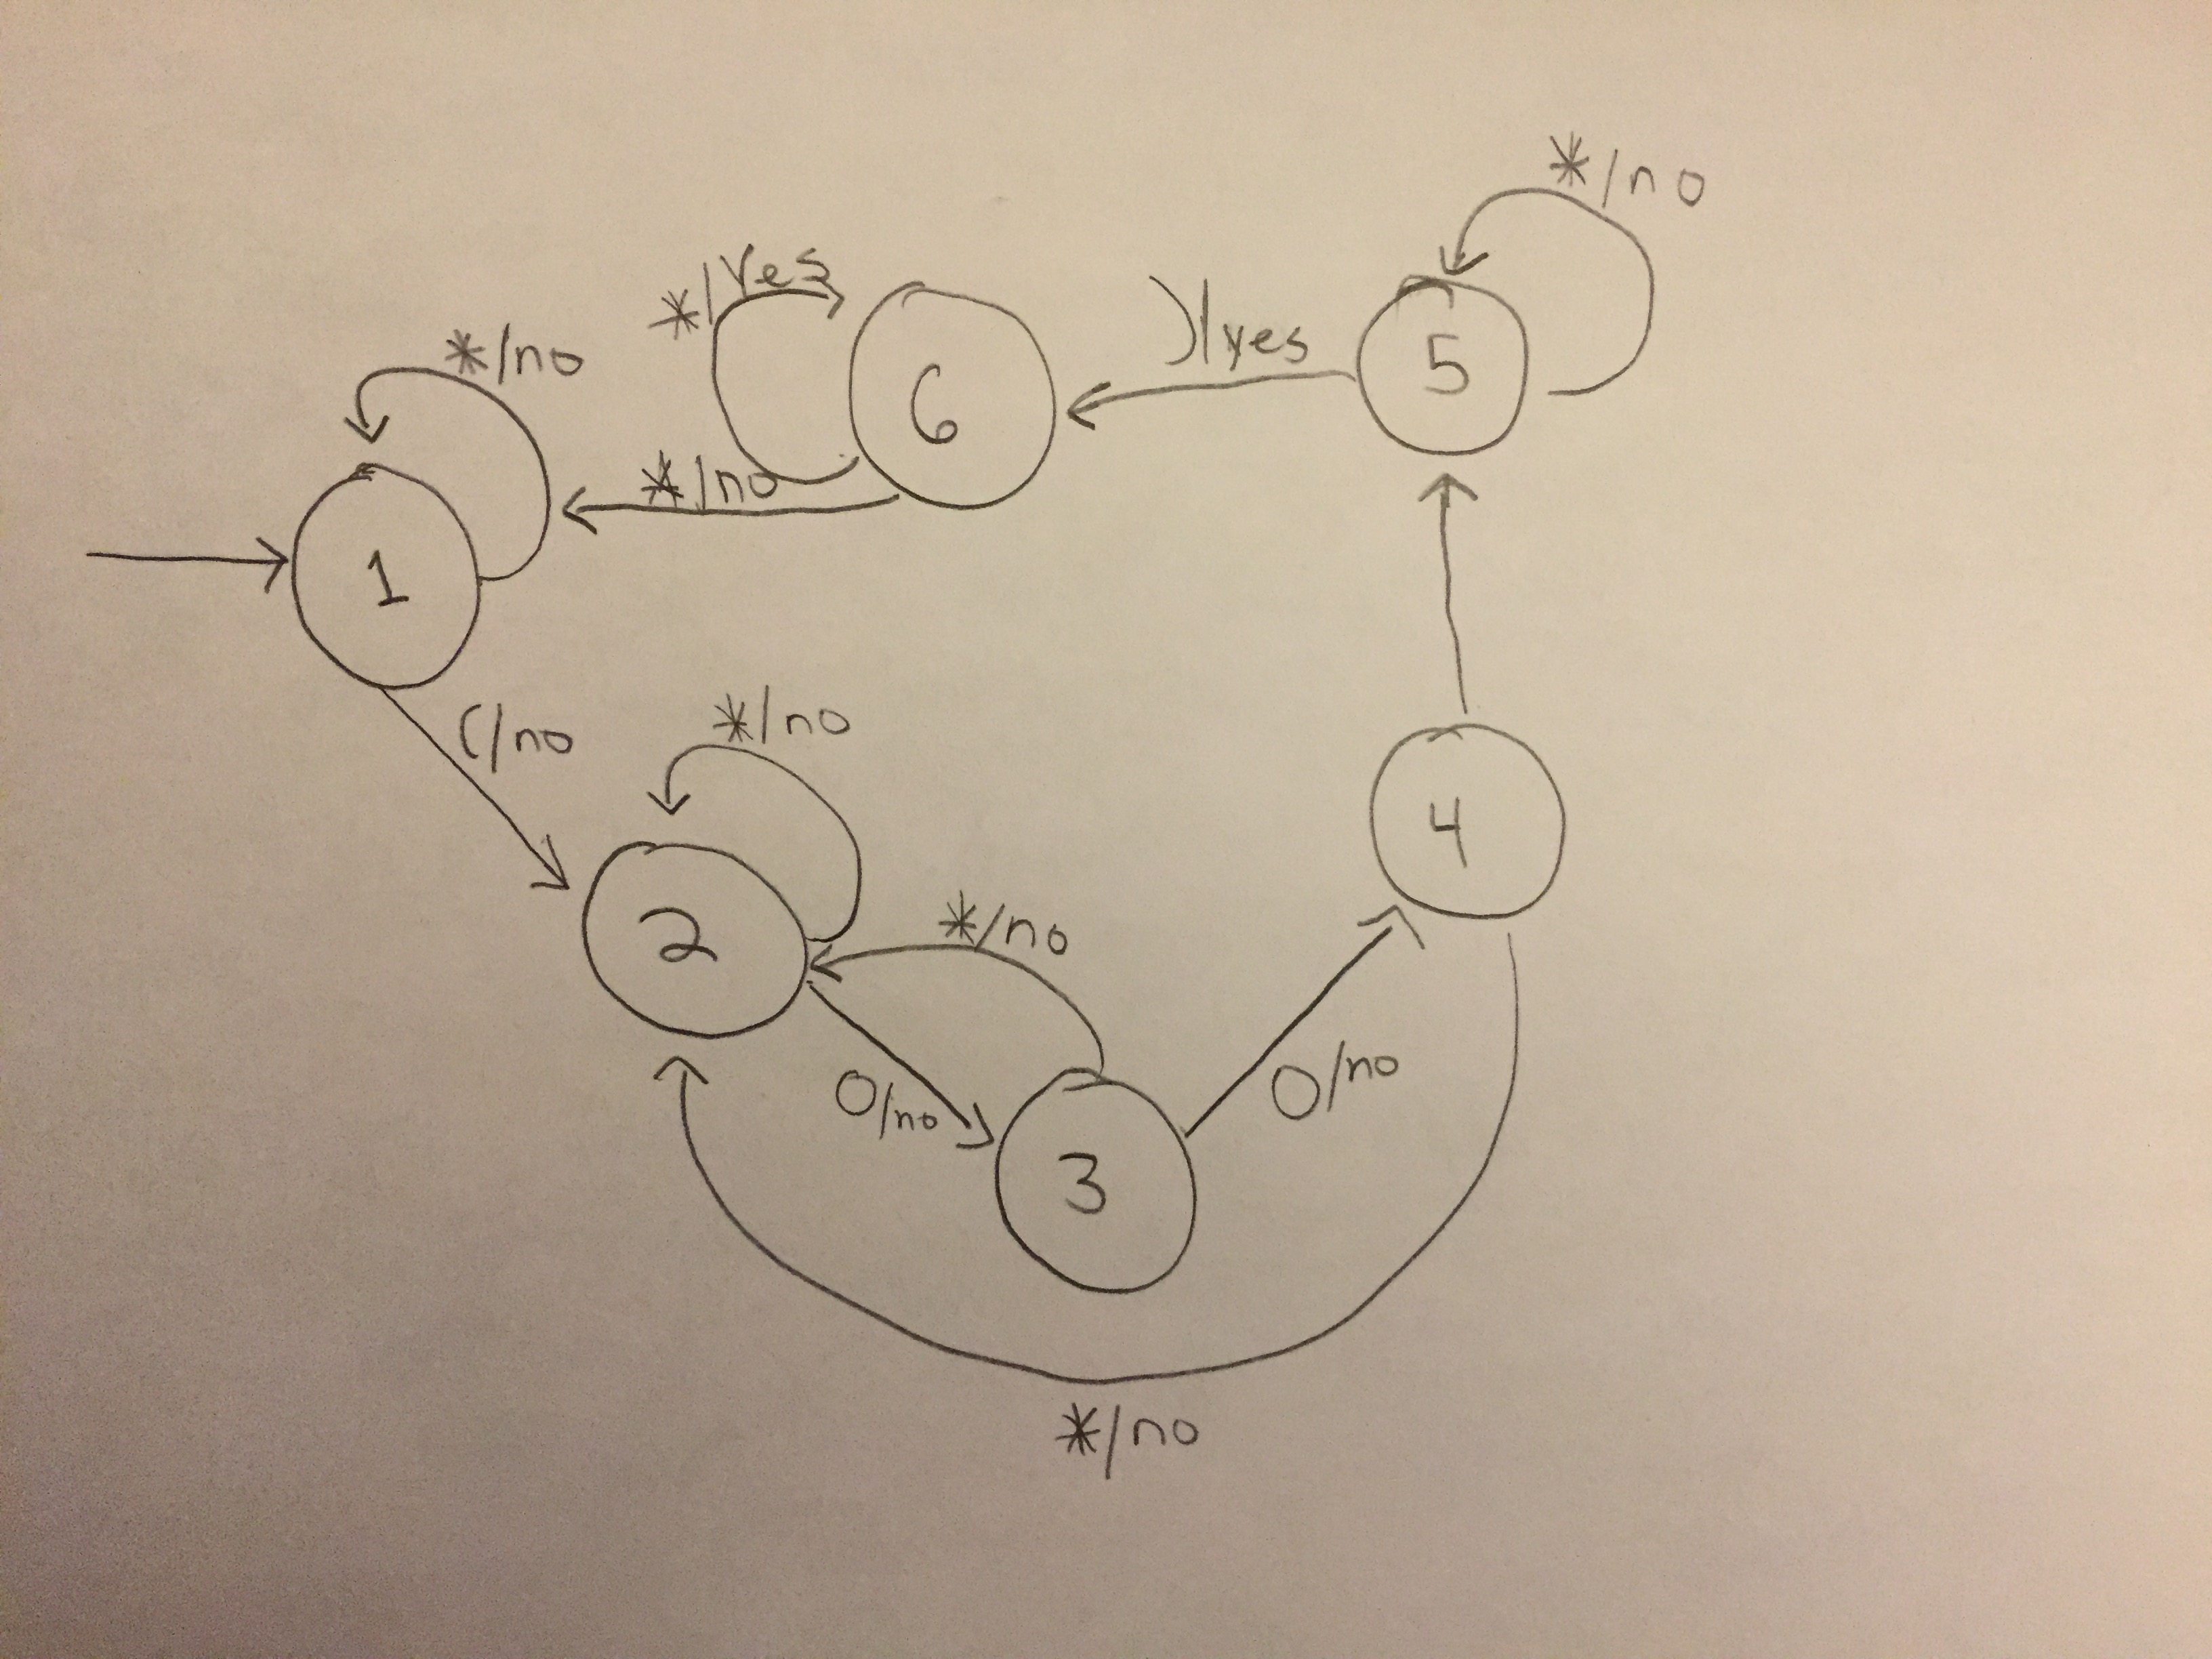 */no
*/yes
)/yes
*/no
5
6
*/no
1
*/no
(/no
*/no
4
2
*/no
O/no
O/no
3
*/no